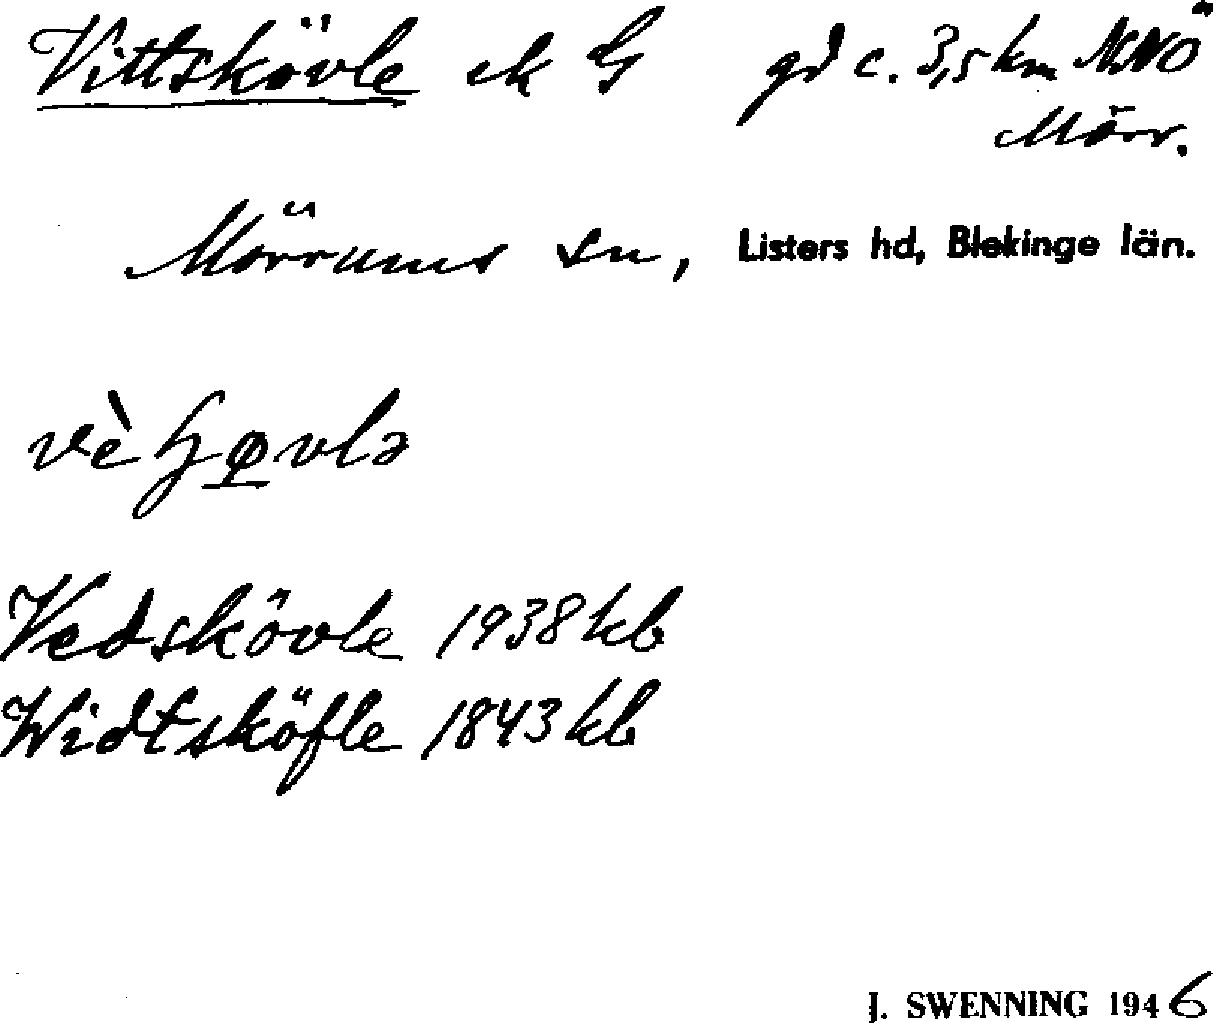 Vittskövle ek G gd c. 3,5 km NNÖ
Mörr.
Mörrums sn, Listers hd, Blekinge län.
Vedskövle 1938 kb
Widtsköfle 1843 kb
J. SWENNING 1946